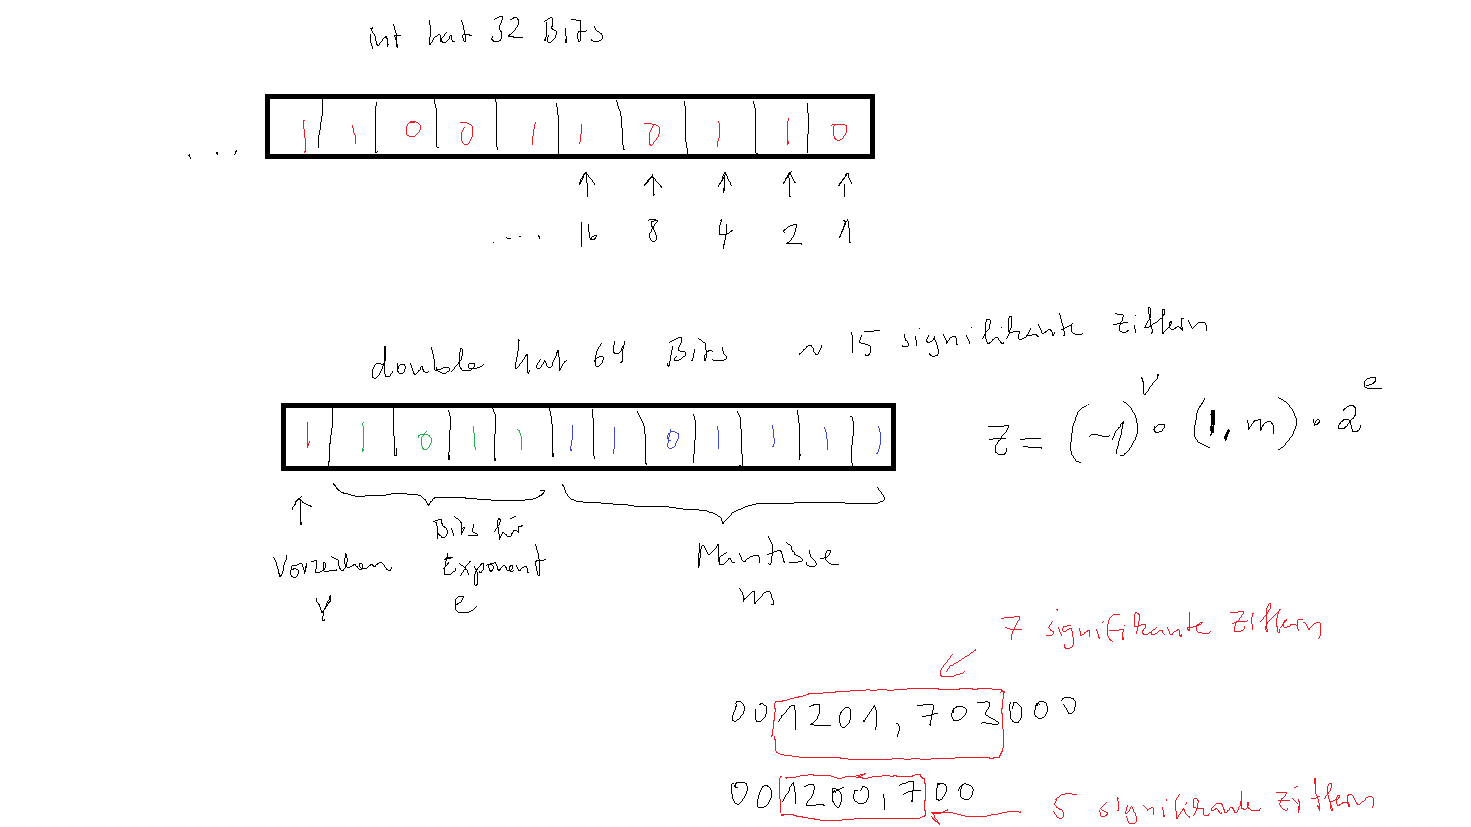 int hat 32 Bits
... 1 1 0 0 1 1 0 1 1 0
.... 16 8 4 2 1
double hat 64 Bits ~ 15 signifikante Ziffern
1 1 0 1 1 1 1 0 1 1 1 1
z = (-1)^v · (1, m) · 2^e
Vorzeichen
v
Bits für
Exponent
e
Mantisse
m
7 signifikante Ziffern
001201,703000
001200,700
5 signifikante Ziffern